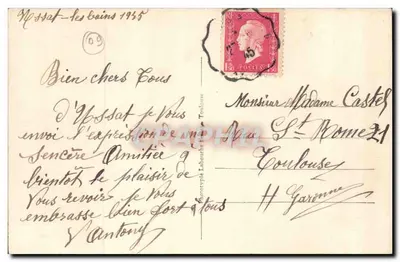 Ussat-les bains 1945
09
Bien chers Tous
d'Ussat je Vous
envoi l'expression de ma
sencère Amitiée a
bientôt le plaisir de
Vous revoir je Vous
embrasse bien fort a tous
Antony
Monsieur Madame Castel
Rue St Rome 21
Toulouse
H Garonne
POSTES
45